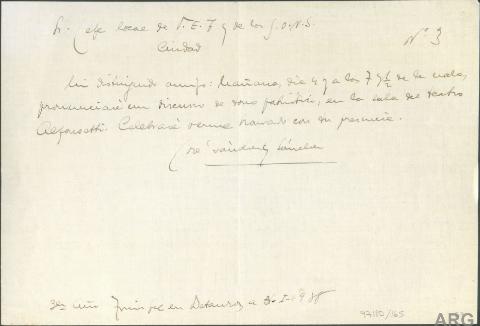 Sr. Jefe local de F.E.T y de las J.O.N.S.
Ciudad
Nº 3
Mi distinguido amigo: Mañana, día 4 y a las 7 y ½ de la
pronunciaré un discurso de tono patriótico, en la sala del teatro
Celebraré verme honrado con su presencia.
José Sánchez
3er año Triunfal en a 3-I-1938
94110/165
ARG